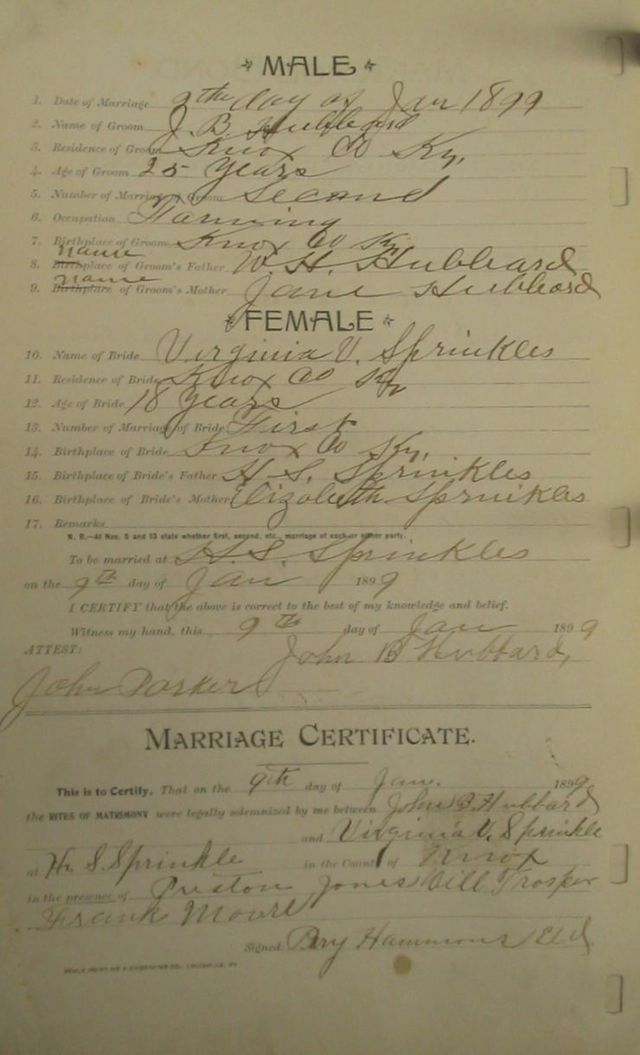 MALE
1. Date of Marriage 9th day of Jan 1899
2. Name of Groom J. B. Hubbard
3. Residence of Groom Knox Co Ky.
4. Age of Groom 25 years
5. Number of Marriage of Groom Second
6. Occupation Farming
7. Birthplace of Groom Knox Co Ky
name
8. Birthplace of Groom's Father W. H. Hubbard
name
9. Birthplace of Groom's Mother Jane Hubbard
FEMALE
10. Name of Bride Virginia V. Sprinkles
11. Residence of Bride Knox Co Ky
12. Age of Bride 18 years
13. Number of Marriage of Bride First
14. Birthplace of Bride Knox Co Ky.
15. Birthplace of Bride's Father H. S. Sprinkles
16. Birthplace of Bride's Mother Elizabeth Sprinkles
17. Remarks
N. B.—At Nos. 5 and 13 state whether first, second, etc., marriage of each or either party.
To be married at H. S. Sprinkles
on the 9th day of Jan 1899
I CERTIFY that the above is correct to the best of my knowledge and belief.
Witness my hand, this 9th day of Jan 1899
ATTEST: John B Hubbard,
John Parker
MARRIAGE CERTIFICATE.
This is to Certify, That on the 9th day of Jan. 1899
the RITES OF MATRIMONY were legally solemnized by me between John B. Hubbard
and Virginia V. Sprinkle
at H. S. Sprinkle in the County of Knox
in the presence of Preston Jones Will Trosper
Frank Moore
Signed: Hammons Eld.